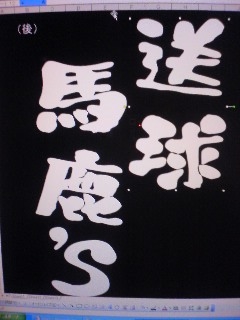 （後）
送球
馬鹿’S